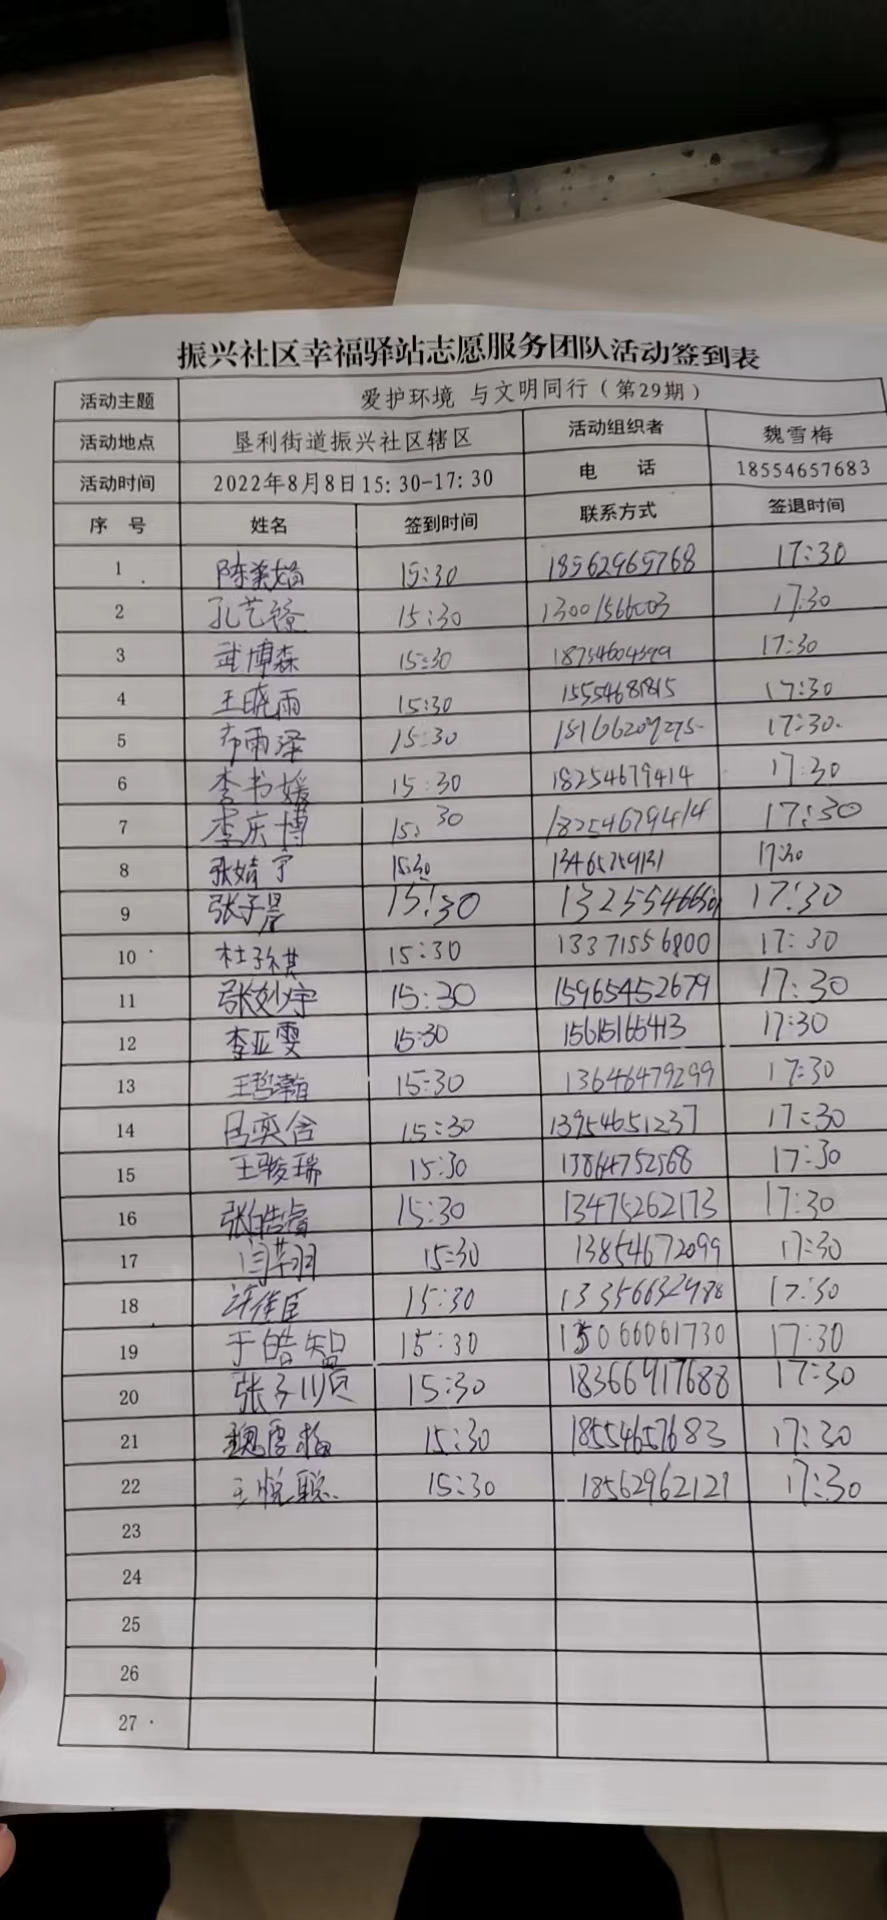 振兴社区幸福驿站志愿服务团队活动签到表
活动主题 爱护环境 与文明同行（第29期）
活动地点 垦利街道振兴社区辖区 活动组织者 魏雪梅
活动时间 2022年8月8日15:30-17:30 电 话 18554657683
序 号 姓名 签到时间 联系方式 签退时间
1 陈美娟 15:30 18562965768 17:30
2 孔艺 15:30 13001566003 17:30
3 武博森 15:30 18754604399 17:30
4 王晓雨 15:30 15554681815 17:30
5 雨泽 15:30 15166209275 17:30
6 李书媛 15:30 18254679414 17:30
7 李庆博 15:30 18254679414 17:30
8 张婧宇 15:30 13465759131 17:30
9 张子晨 15:30 17:30
10 杜子祺 15:30 13371556800 17:30
11 张妙宇 15:30 15965452679 17:30
12 李亚雯 15:30 15615165413 17:30
13 王哲瀚 15:30 13646479299 17:30
14 吕奕含 15:30 13954651237 17:30
15 王骏瑞 15:30 13864752568 17:30
16 张皓睿 15:30 13475262173 17:30
17 闫芊羽 15:30 13854672099 17:30
18 15:30 13356632988 17:30
19 于皓智 15:30 15066061730 17:30
20 张子顺 15:30 18366917688 17:30
21 魏雪梅 15:30 18554657683 17:30
22 王悦聪 15:30 18562962121 17:30
23
24
25
26
27